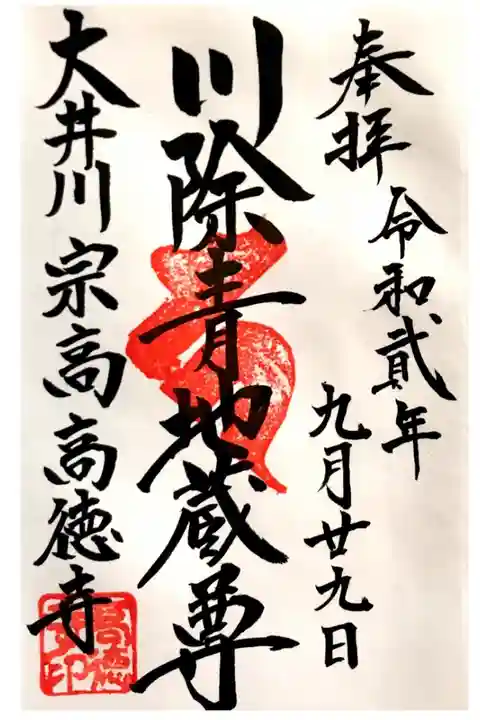 奉拝
令和貳年
九月廿九日
川除青地蔵尊
大井川宗高高徳寺
高徳
寺印